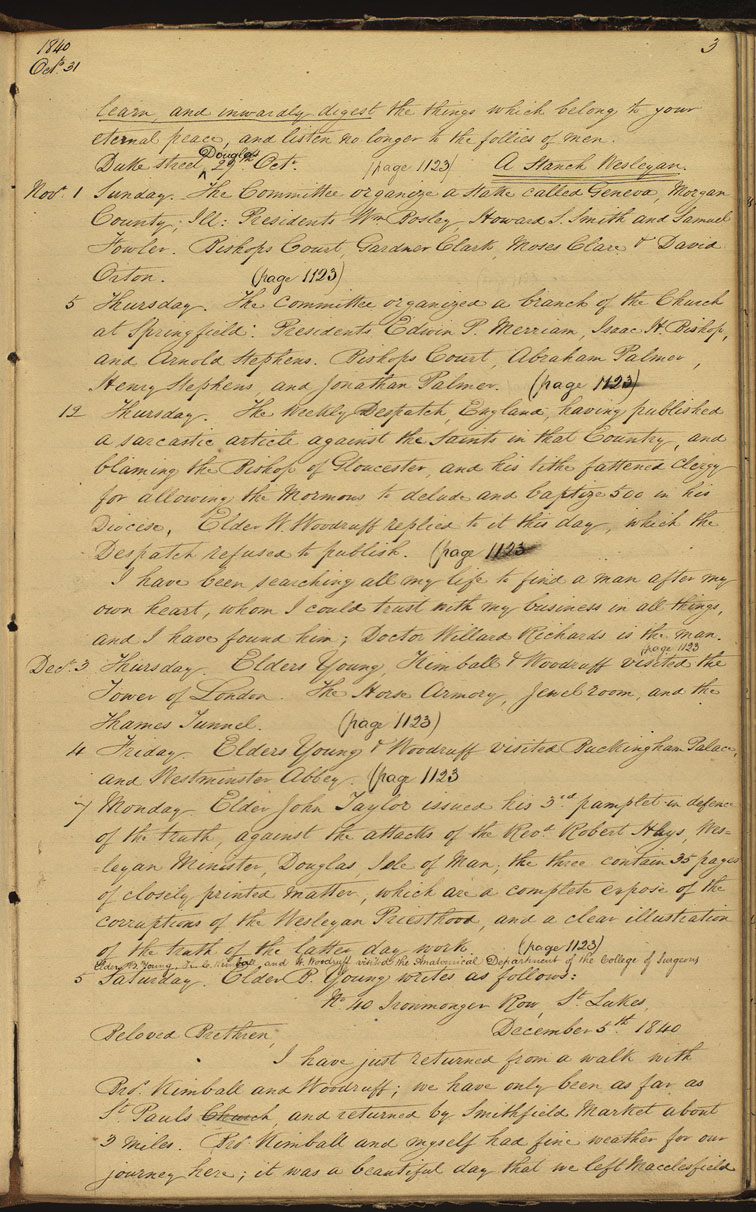 1840
Octr. 31
3
learn, and inwardly digest the things which belong to your
eternal peace, and listen no longer to the follies of men.
Duke street Douglas 29th Octr. (page 1123) A Stanch Wesleyan.
Novr. 1 Sunday. The Committee organize a stake called Geneva, Morgan
County, Ill: Presidents Wm Bosley, Howard S. Smith and Samuel
Fowler. Bishops Court, Gardner Clark, Moses Clare & David
Orton. (page 1123)
5 Thursday. The committee organized a branch of the Church
at Springfield: Presidents Edwin P. Merriam, Isaac H. Bishop,
and Arnold Stephens. Bishops Court, Abraham Palmer,
Henry Stephens, and Jonathan Palmer. (page 1123)
12 Thursday. The Weekly Despatch, England, having published
a sarcastic article against the Saints in that Country, and
blaming the Bishop of Gloucester, and his tithe fattened clergy
for allowing the Mormons to delude and baptize 500 in his
Diocese, Elder W. Woodruff replied to it this day, which the
Despatch refused to publish. (page 1123
I have been searching all my life to find a man after my
own heart, whom I could trust with my business in all things,
and I have found him; Doctor Willard Richards is the man.
page 1123
Decr. 3 Thursday. Elders Young, Kimball & Woodruff visited the
Tower of London. The Horse Armory, Jewel room, and the
Thames Tunnel. (page 1123)
4 Friday. Elders Young & Woodruff visited Buckingham Palace,
and Westminster Abbey. (page 1123
7 Monday. Elder John Taylor issued his 3rd pamplet in defence
of the truth, against the attacks of the Revd. Robert Hays, Wes=
=leyan Minister, Douglas, Isle of Man; the three contain 35 pages
of closely printed matter, which are a complete expose of the
corruptions of the Wesleyan Priesthood, and a clear illustration
of the truth of the latter day work. (page 1123)
Elders B. Young, H. C. Kimball and W. Woodruff visited the Anatomical Department of the College of Surgeons
5 Saturday. Elder B. Young writes as follows:
No 40 Ironmonger Row, St. Lukes,
Beloved Brethren, December 5th 1840
I have just returned from a walk with
Bro. Kimball and Woodruff; we have only been as far as
St. Pauls Church, and returned by Smithfield Market about
3 miles. Bro. Kimball and myself had fine weather for our
journey here; it was a beautiful day that we left Macclesfield